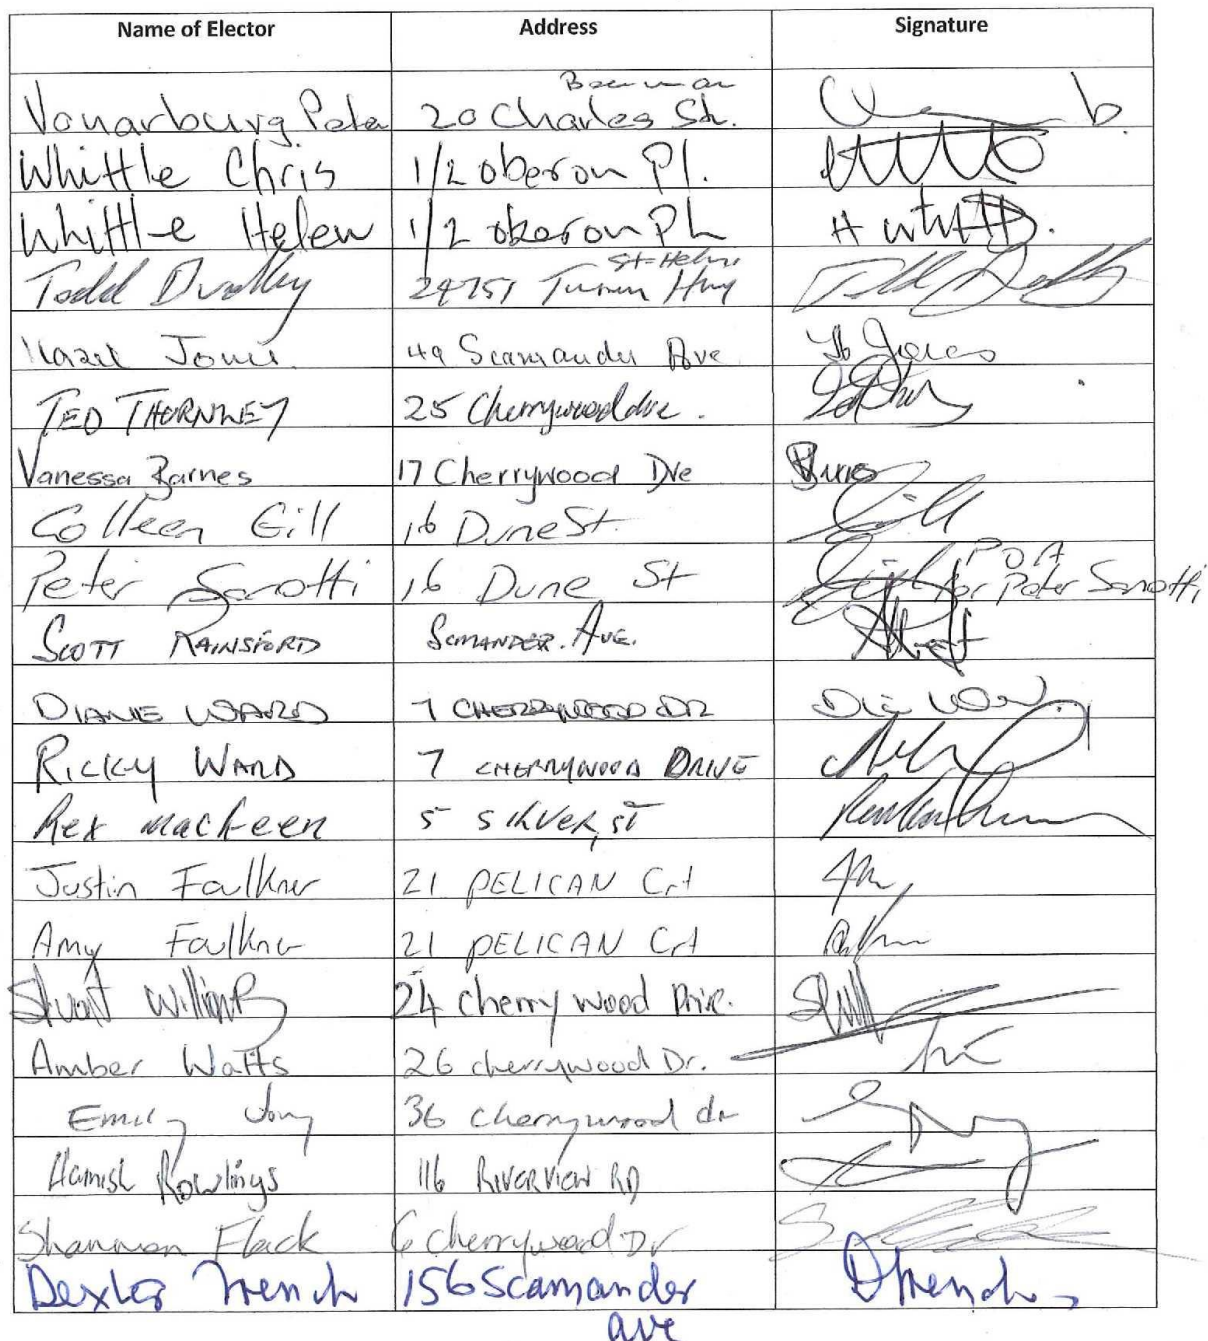 Name of Elector Address Signature
Vonarburg Peter 20 Charles St.
Whittle Chris 1/2 oberon Pl.
Whittle Helen 1/2 oberon PL H
St-Helens
Todd Dudley 24751 Hwy
49 Scamander Ave
TED THORNLEY 25 Cherrywood dve.
Vanessa Barnes 17 Cherrywood Dve
Colleen Gill 16 Dune St. Gill
Peter Sanotti 16 Dune St POA
for Peter Sanotti
SCOTT RAINSFORD SCMANDER. AVE.
DIANE WARD 7 CHERRYWOOD DR
RICKY WARD 7 CHERRYWOOD DRIVE
Rex 5 SILVER ST
Justin Faulkner 21 PELICAN Crt
Amy Faulkner 21 PELICAN Crt
Stuart 24 cherry wood Drive.
Amber Watts 26 cherrywood Dr.
Emily 36 cherrywood dr
Hamish Rowlings 116 RIVERVIEW RD
Shannon Flack 6 Cherrywood Dr
Dexter Trench 156 Scamander DTrench
ave